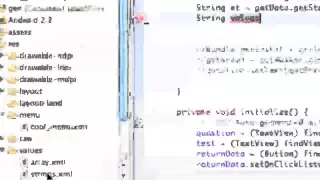 gen
Android 2.2
assets
res
drawable-hdpi
drawable-ldpi
drawable-mdpi
layout
layout-land
menu
cool_menu.xml
raw
values
array.xml
strings.xml
String et = getData.getStr
String values
private void initialize() {
question = (TextView) findV
test = (TextView) findView
returnData = (Button) findV
returnData.setOnClickListe